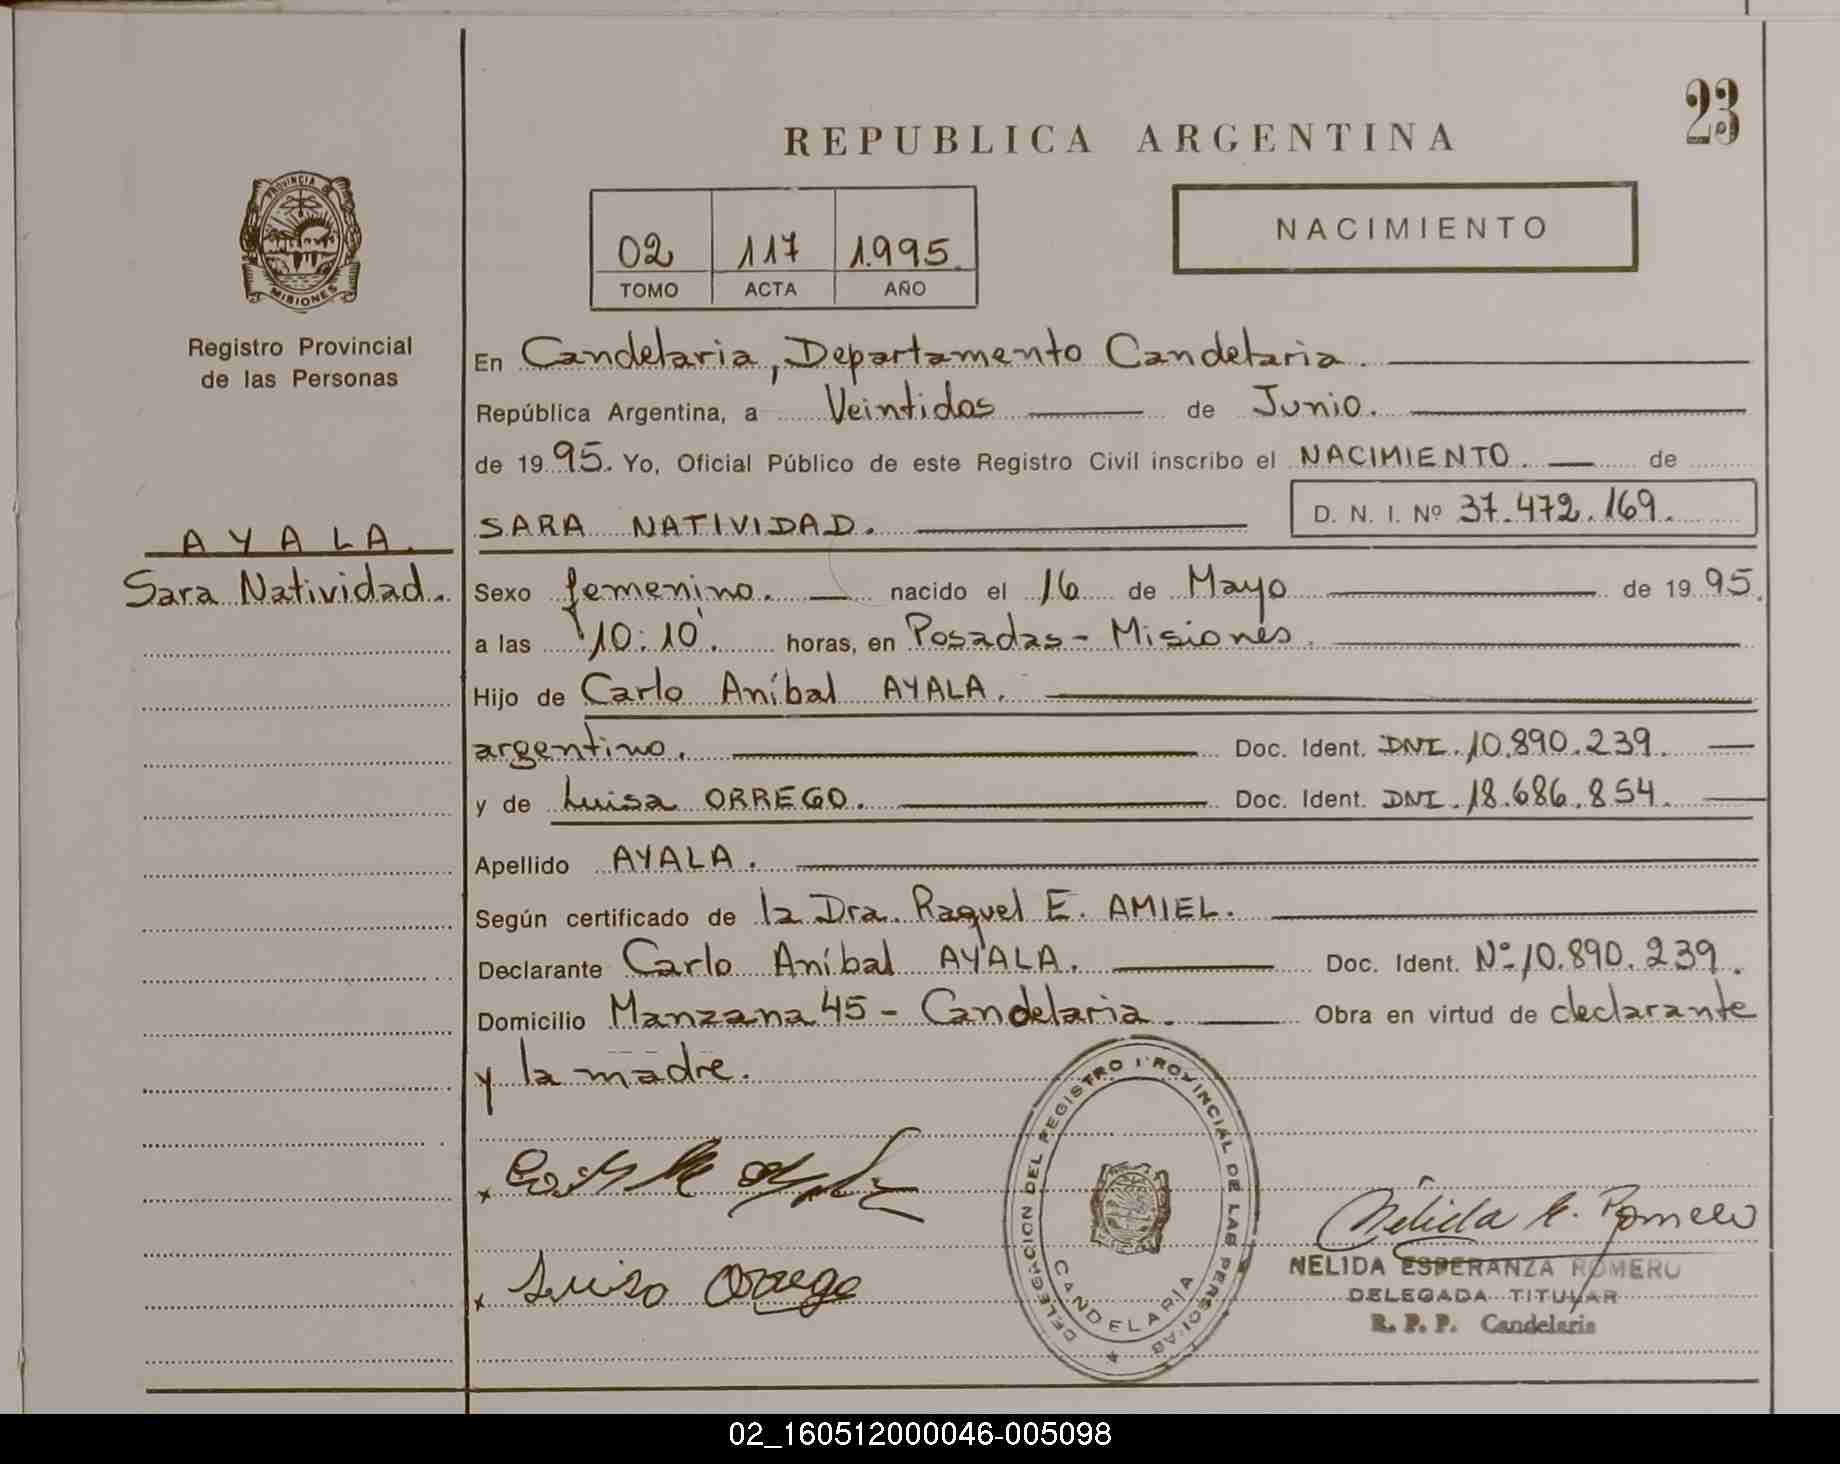 23
REPUBLICA ARGENTINA
PROVINCIA DE
MISIONES
02 117 1.995
TOMO ACTA AÑO
NACIMIENTO
Registro Provincial
de las Personas
AYALA.
Sara Natividad.
En Candelaria, Departamento Candelaria.
República Argentina, a Veintidos de Junio.
de 1995. Yo, Oficial Público de este Registro Civil inscribo el NACIMIENTO. de
SARA NATIVIDAD. D. N. I. Nº 37.472.169.
Sexo femenino. nacido el 16 de Mayo de 1995.
a las 10:10'. horas, en Posadas - Misiones.
Hijo de Carlo Aníbal AYALA.
argentino. Doc. Ident. DNI. 10.890.239.
y de Luisa ORREGO. Doc. Ident. DNI. 18.686.854.
Apellido AYALA.
Según certificado de la Dra. Raquel E. AMIEL.
Declarante Carlo Aníbal AYALA. Doc. Ident. Nº 10.890.239.
Domicilio Manzana 45 - Candelaria. Obra en virtud de declarante
y la madre.
DELEGACION DEL REGISTRO PROVINCIAL DE LAS PERSONAS
CANDELARIA
Luisa Orrego
Nélida E. Romero
NELIDA ESPERANZA ROMERO
DELEGADA TITULAR
R. P. P. Candelaria
02_160512000046-005098